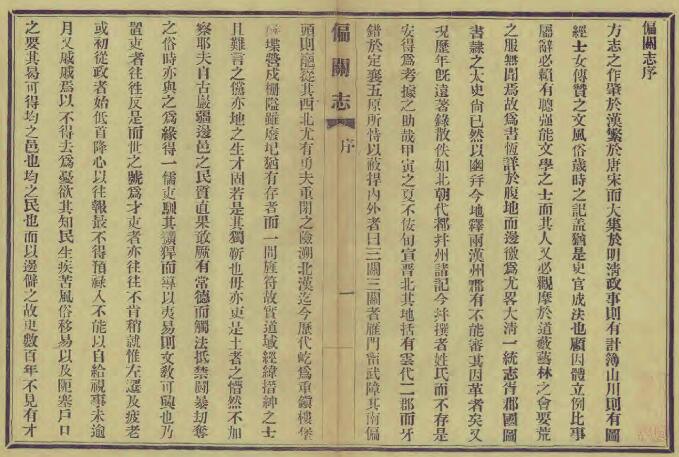 偏關志序
方志之作肇於漢繁於唐宋而大集於明清政事則有計簿山川則有圖
經士女傳贊之文風俗歲時之記蓋猶是史官成法也顧因體立例比事
屬辭必賴有聰强能文學之士而其人又必觀摩於道藪藝林之會要荒
之服無聞焉故爲書恆詳於腹地而邊徼爲尤畧大清一統志省郡國圖
書隷之太史尙已然以幽幷今地釋兩漢州郡有不能審其因革者矣又
况歷年旣遠著錄散佚如北朝代都幷州諸記今幷撰者姓氏而不存是
安得爲考據之助哉甲寅之夏不佞旬宣晉北其地括有雲代二郡而牙
錯於定襄五原所恃以蔽捍内外者曰三關三關者雁門甯武障其南偏
偏關志
序
一
頭則巃嵸其西北尤有勇夫重閉之險溯北漢迄今歷代屹爲重鎭樓堡
堠堞營戍柵隘雖廢圮猶有存者而一問旌符故實道域經緯搢紳之士
且難言之儻亦地之生才固若是其獨靳也毋亦吏是土者之懵然不加
察耶夫自古巖疆邊邑之民質直果敢厥有常德而觸法抵禁鬭暴劫奪
之俗時亦與之爲緣得一儒吏馴其獷猂而導以夷易則文敎可興也乃
置吏者往往反是而世之號爲才吏者亦往往不肯稍就惟左遷及疲老
或初從政者始低首降心以往報最不得預祿入不能以自給視事未逾
月又戚戚焉以不得去爲憂欲其知民生疾苦風俗移易以及阨塞戶口
之要其易可得均之邑也均之民也而以邊僻之故吏數百年不見有才